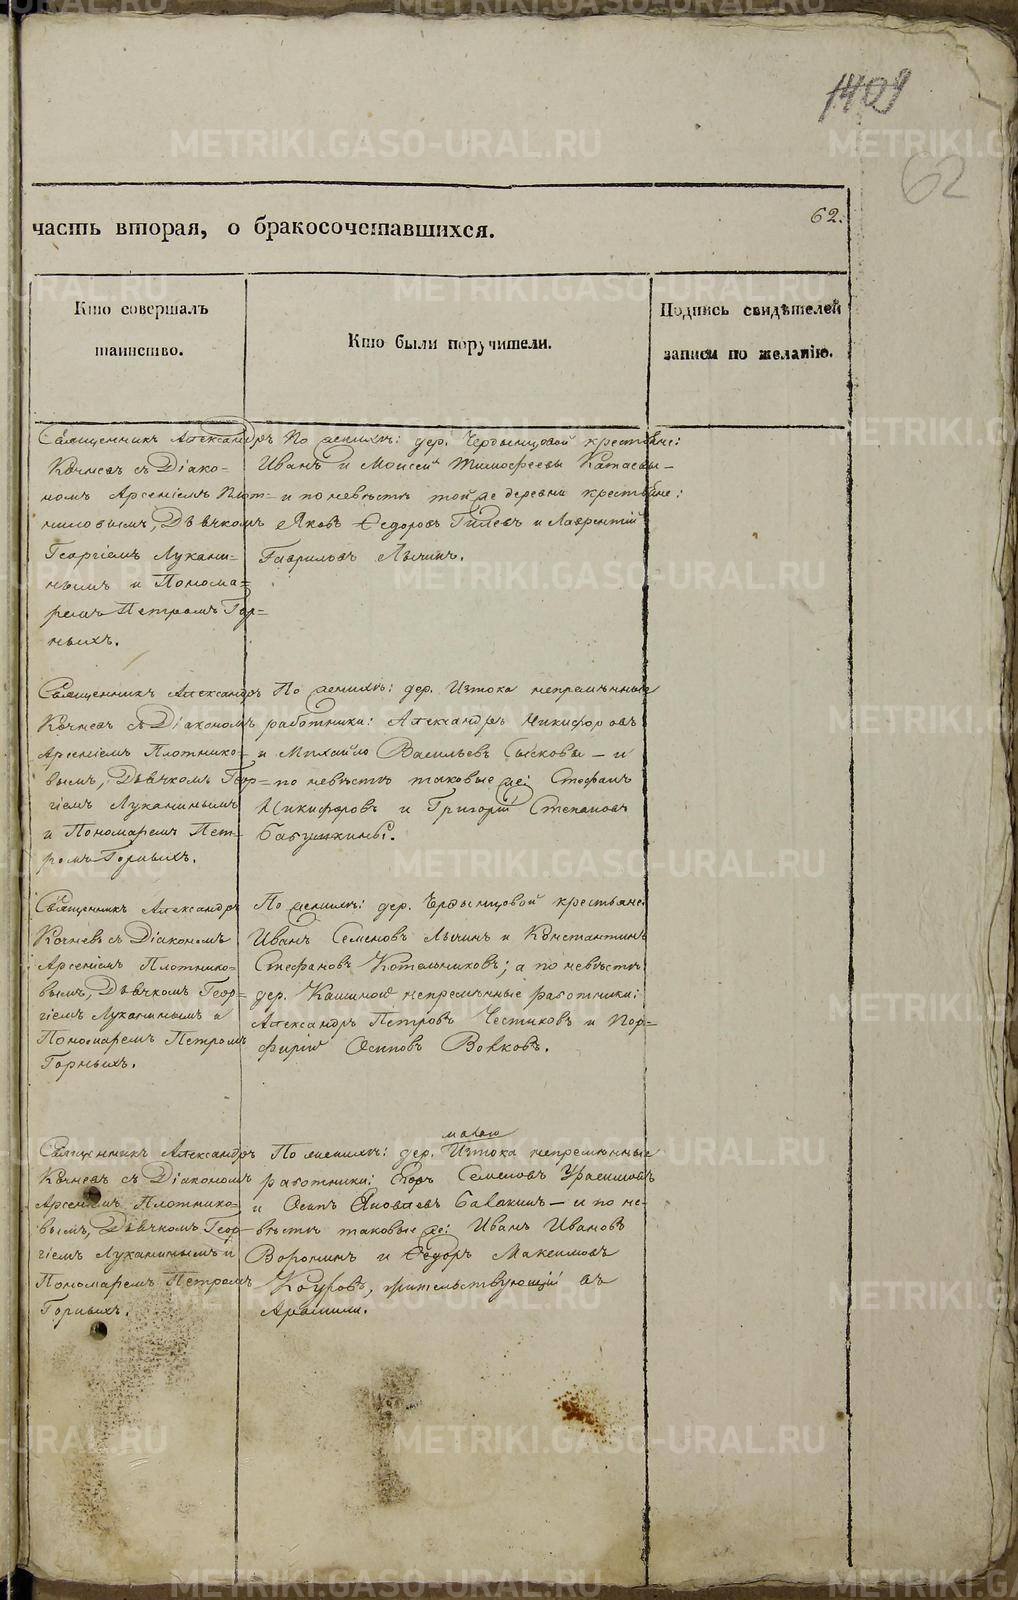 1409
62
62.
часть вторая, о бракосочетавшихся.
Кто совершалъ
таинство.
Кто были поручители.
Подпись свидѣтелей
записи по желанію.
Священникъ Александръ
Кочневъ съ Діако-
номъ Арсеніемъ Плот-
никовымъ, Дьячкомъ
Георгіемъ Лукани-
нымъ и Понома-
ремъ Петромъ Гор-
ныхъ.
По женихѣ: дер. Чердынцовой крестьяне:
Иванъ и Моисей Тимофеевы Катаевы -
и по невѣстѣ той же деревни крестьяне:
Яковъ Ѳедоровъ Гилевъ и Лаврентій
Гавриловъ Лычинъ.
Священникъ Александръ
Кочневъ съ Діакономъ
Арсеніемъ Плотнико-
вымъ, Дьячкомъ Геор-
гіемъ Луканинымъ
и Пономаремъ Пет-
ромъ Горныхъ.
По женихѣ: дер. Истока непремѣнные
работники: Александръ Никифоровъ
и Михайло Васильевъ Сысковы - и
по невѣстѣ таковые же: Стефанъ
Никифоровъ и Григорій Степановъ
Бабушкины.
Священникъ Александръ
Кочневъ съ Діакономъ
Арсеніемъ Плотнико-
вымъ, Дьячкомъ Геор-
гіемъ Луканинымъ и
Пономаремъ Петромъ
Горныхъ.
По женихѣ: дер. Чердынцовой крестьяне
Иванъ Семеновъ Лычинъ и Константинъ
Стефановъ Котельниковъ; а по невѣстѣ
дер. Кашиной непремѣнные работники:
Александръ Петровъ Честиковъ и Пор-
фирій Осиповъ Волковъ.
Священникъ Александръ
Кочневъ съ Діакономъ
Арсеніемъ Плотнико-
вымъ, Дьячкомъ Геор-
гіемъ Луканинымъ и
Пономаремъ Петромъ
Горныхъ.
малаго
По женихѣ: дер. Истока непремѣнные
работники: Егоръ Семеновъ
и Осипъ Яковлевъ Балакинъ - и по не-
вѣстѣ таковые же: Иванъ Ивановъ
Воронинъ и Ѳедоръ Максимовъ
Коуровъ, жительствующій въ
Арамили.
METRIKI.GASO-URAL.RU